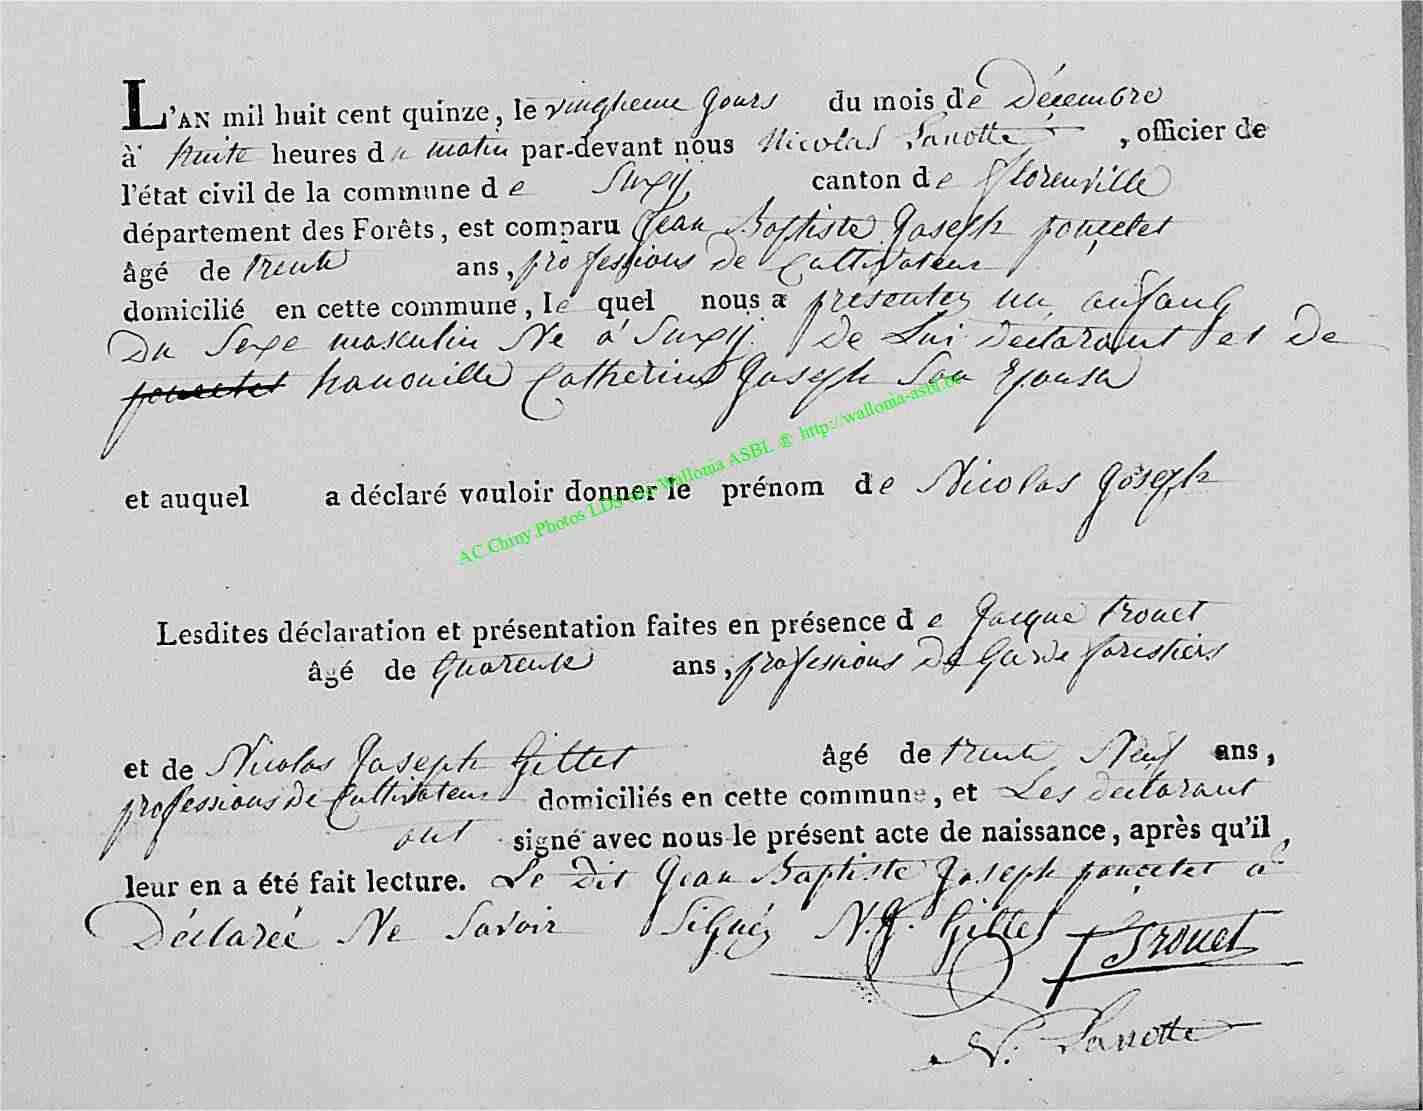 L'AN mil huit cent quinze, le vingtieme Jours du mois de Décembre
à huite heures du matin par-devant nous Nicolas Lanotte, officier de
l'état civil de la commune de Suxÿ canton de florenville
département des Forêts, est comparu Jean Baptiste Joseph ponçelet
âgé de trente ans, professions de Cultivateur
domicilié en cette commune, le quel nous a presentez un enfant
Du Sexe masculin Né à Suxÿ De Lui declarant et de
ponçelet hanouille Catherine Joseph Son Epouse
et auquel a déclaré vouloir donner le prénom de Nicolas Joseph
AC Chiny Photos LDS Wallonia ASBL @ http://wallonia-asbl.be
Lesdites déclaration et présentation faites en présence de Jacque trouet
âgé de Quarente ans, professions De Garde forestiers
et de Nicolas Joseph Gillet âgé de trente Neuf ans,
professions de Cultivateur domiciliés en cette commune, et Les declarant
ont signé avec nous le présent acte de naissance, après qu'il
leur en a été fait lecture. Le Dit Jean Baptiste Joseph ponçelet a
Déclarée Ne Savoir Signéz N. J. Gillet Trouet
N. Lanotte